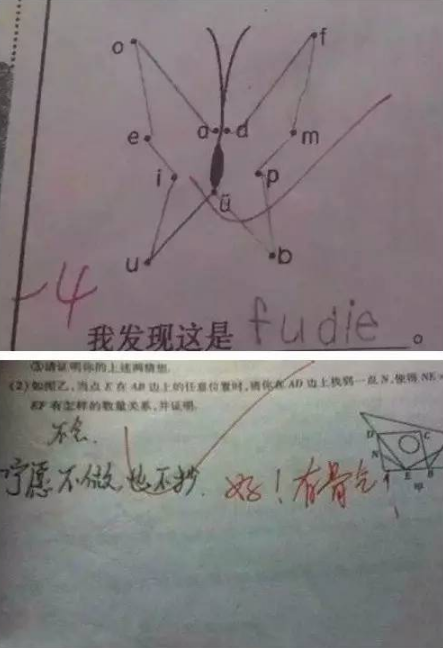 o
f
a
d
e
m
i
p
ü
u
b
-4
我发现这是 fudie 。
③请证明你的上述两猜想.
(2)如图乙,当点 E 在 AB 边上的任意位置时,请你在 AD 边上找到一点 N,使得 NE=
EF 有怎样的数量关系,并证明.
不会.
宁愿不做 也不抄. 好!有骨气
D
C
N
A
E
B
甲